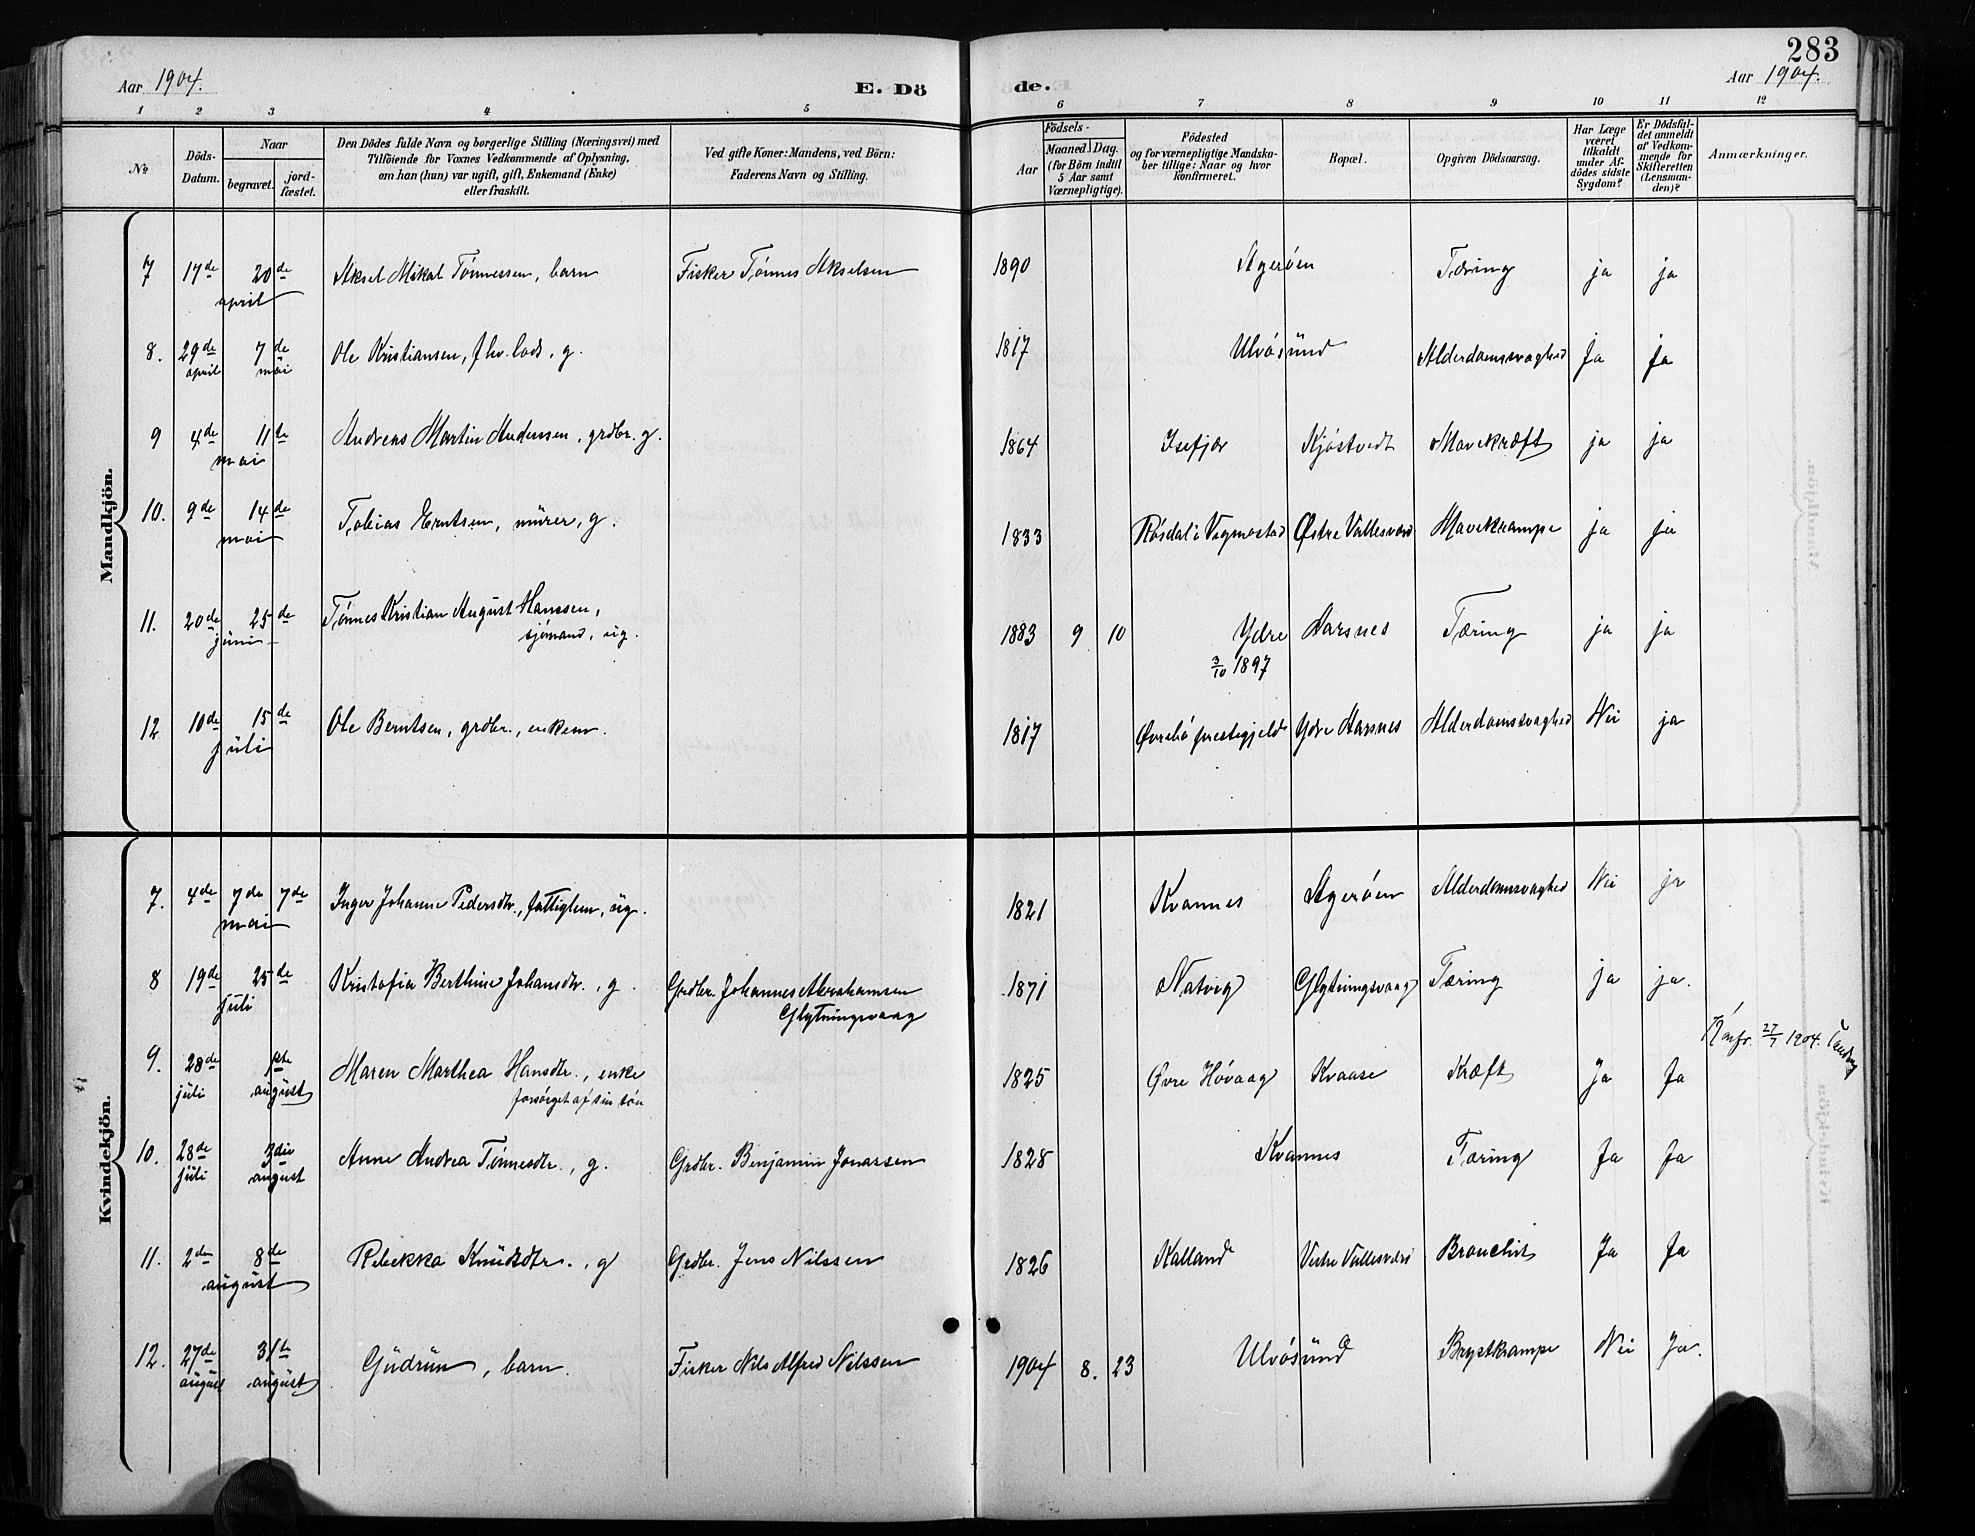 283
Aar 1904. E. Dö de. Aar 1904.
1 2 3 4 5 6 7 8 9 10 11 12
No
Döds-Datum.
Naar
begravet.
jord-fæstet.
Den Dödes fulde Navn og borgerlige Stilling (Næringsvei) med
Tilföiende for Voxnes Vedkommende af Oplysning,
om han (hun) var ugift, gift, Enkemand (Enke)
eller fraskilt.
Ved gifte Koner: Mandens, ved Börn:
Faderens Navn og Stilling.
Födsels-
Aar
Maaned. Dag.
(for Börn indtil
5 Aar samt
Værnepligtige).
Födested
og for værnepligtige Mandska-
ber tillige: Naar og hvor
konfirmeret.
Bopæl.
Opgiven Dödsaarsag.
Har Læge
været
tilkaldt
under Af-
dödes sidste
Sygdom?
Er Dödsfal-
det anmeldt
af Vedkom-
mende for
Skifteretten
(Lensman-
den)?
Anmærkninger.
Mandkjön.
7 17de 20de april Aksel Mikal Tønnessen, barn Fisker Tønnes Akselsen 1890 Agerøen Tæring ja ja
8. 29de april 7de mai Ole Kristiansen, fhv. lods, g. 1817 Ulvøsund Alderdomssvaghed Ja Ja
9 4de 11te mai Andreas Martin Andersen, grdbr. g. 1864 Isefjær Kjøstvedt Mavekræft ja ja
10. 9de 14de mai Tobias Erntsen, murer, g. 1833 Røsdal i Vegmostad Østre Vallesverd Mavekrampe ja ja
11. 20de 25de juni Tønnes Kristian August Hanssen,
sjømand, ug. 1883 9 10 Ydre Aarsnes Tæring ja ja
3/10 1897
12 10de 15de juli Ole Berntsen, grdbr., enkem. 1817 Øvrebø prestegjeld Ydre Aarsnes Alderdomssvaghed Nei ja
Kvindekjön.
7. 4de 7de 7de mai Inger Johanne Pedersdtr., fattiglem, ug. 1821 Kvannes Agerøen Alderdomssvaghed Nei ja
8 19de 25de juli Kristofia Berthine Johansdtr., g. Grdbr. Johannes Abrahamsen
Glytningsvaag 1871 Natvig Glytningsvaag Tæring ja ja.
Konfr. 27/7 1904.
9. 28de juli 1ste august Maren Marthea Hansdtr., enke
forsørget af sin søn 1825 Øvre Høvaag Kvaase Kræft Ja Ja
10. 28de juli 3die august Anne Andrea Tønnesdtr., g. Grdbr. Benjamin Jonassen 1828 Kvannes Tæring Ja Ja
11. 2den 8de august Rebekka Knudsdtr., g Grdbr. Jens Nilssen 1826 Kalland Vestre Vallesverd Bronchit Ja Ja
12. 27de august 31te august Gudrun, barn. Fisker Nils Alfred Nilssen 1904 8. 23 Ulvøsund Brystkrampe Nei Ja.